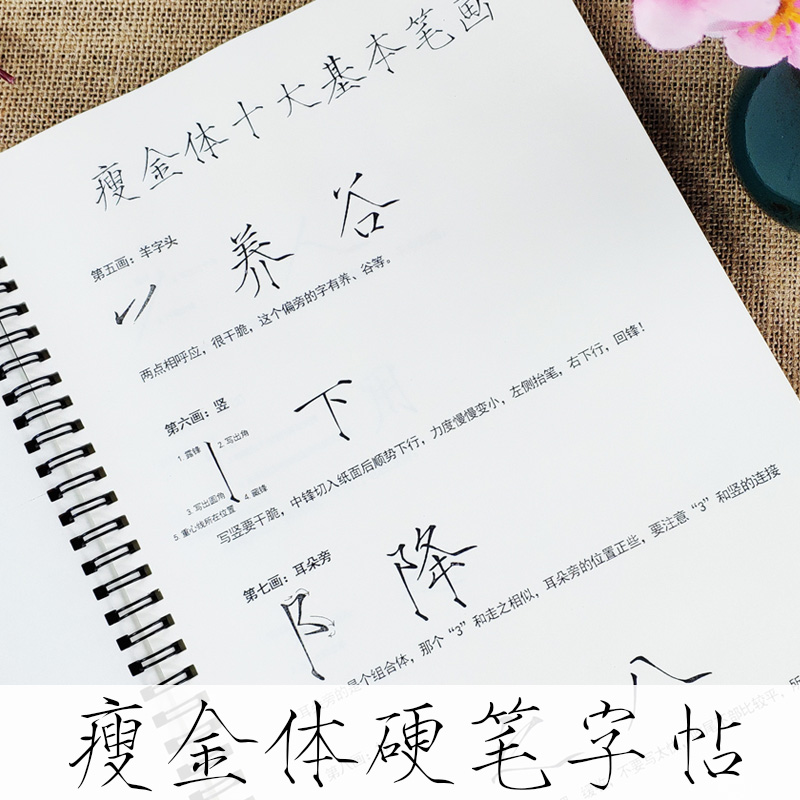 瘦金体十大基本笔画
第五画：羊字头
养 谷
两点相呼应，很干脆，这个偏旁的字有养、谷等。
第六画：竖
下
1.露锋
2.写出角
3.写出圆角
4.藏锋
5.重心线所在位置
写竖要干脆，中锋切入纸面后顺势下行，力度慢慢变小，左侧抬笔，右下行，回锋！
第七画：耳朵旁
阝 降
是个组合体，那个“3”和走之相似，耳朵旁的位置正些，要注意“3”和竖的连接
瘦金体硬笔字帖